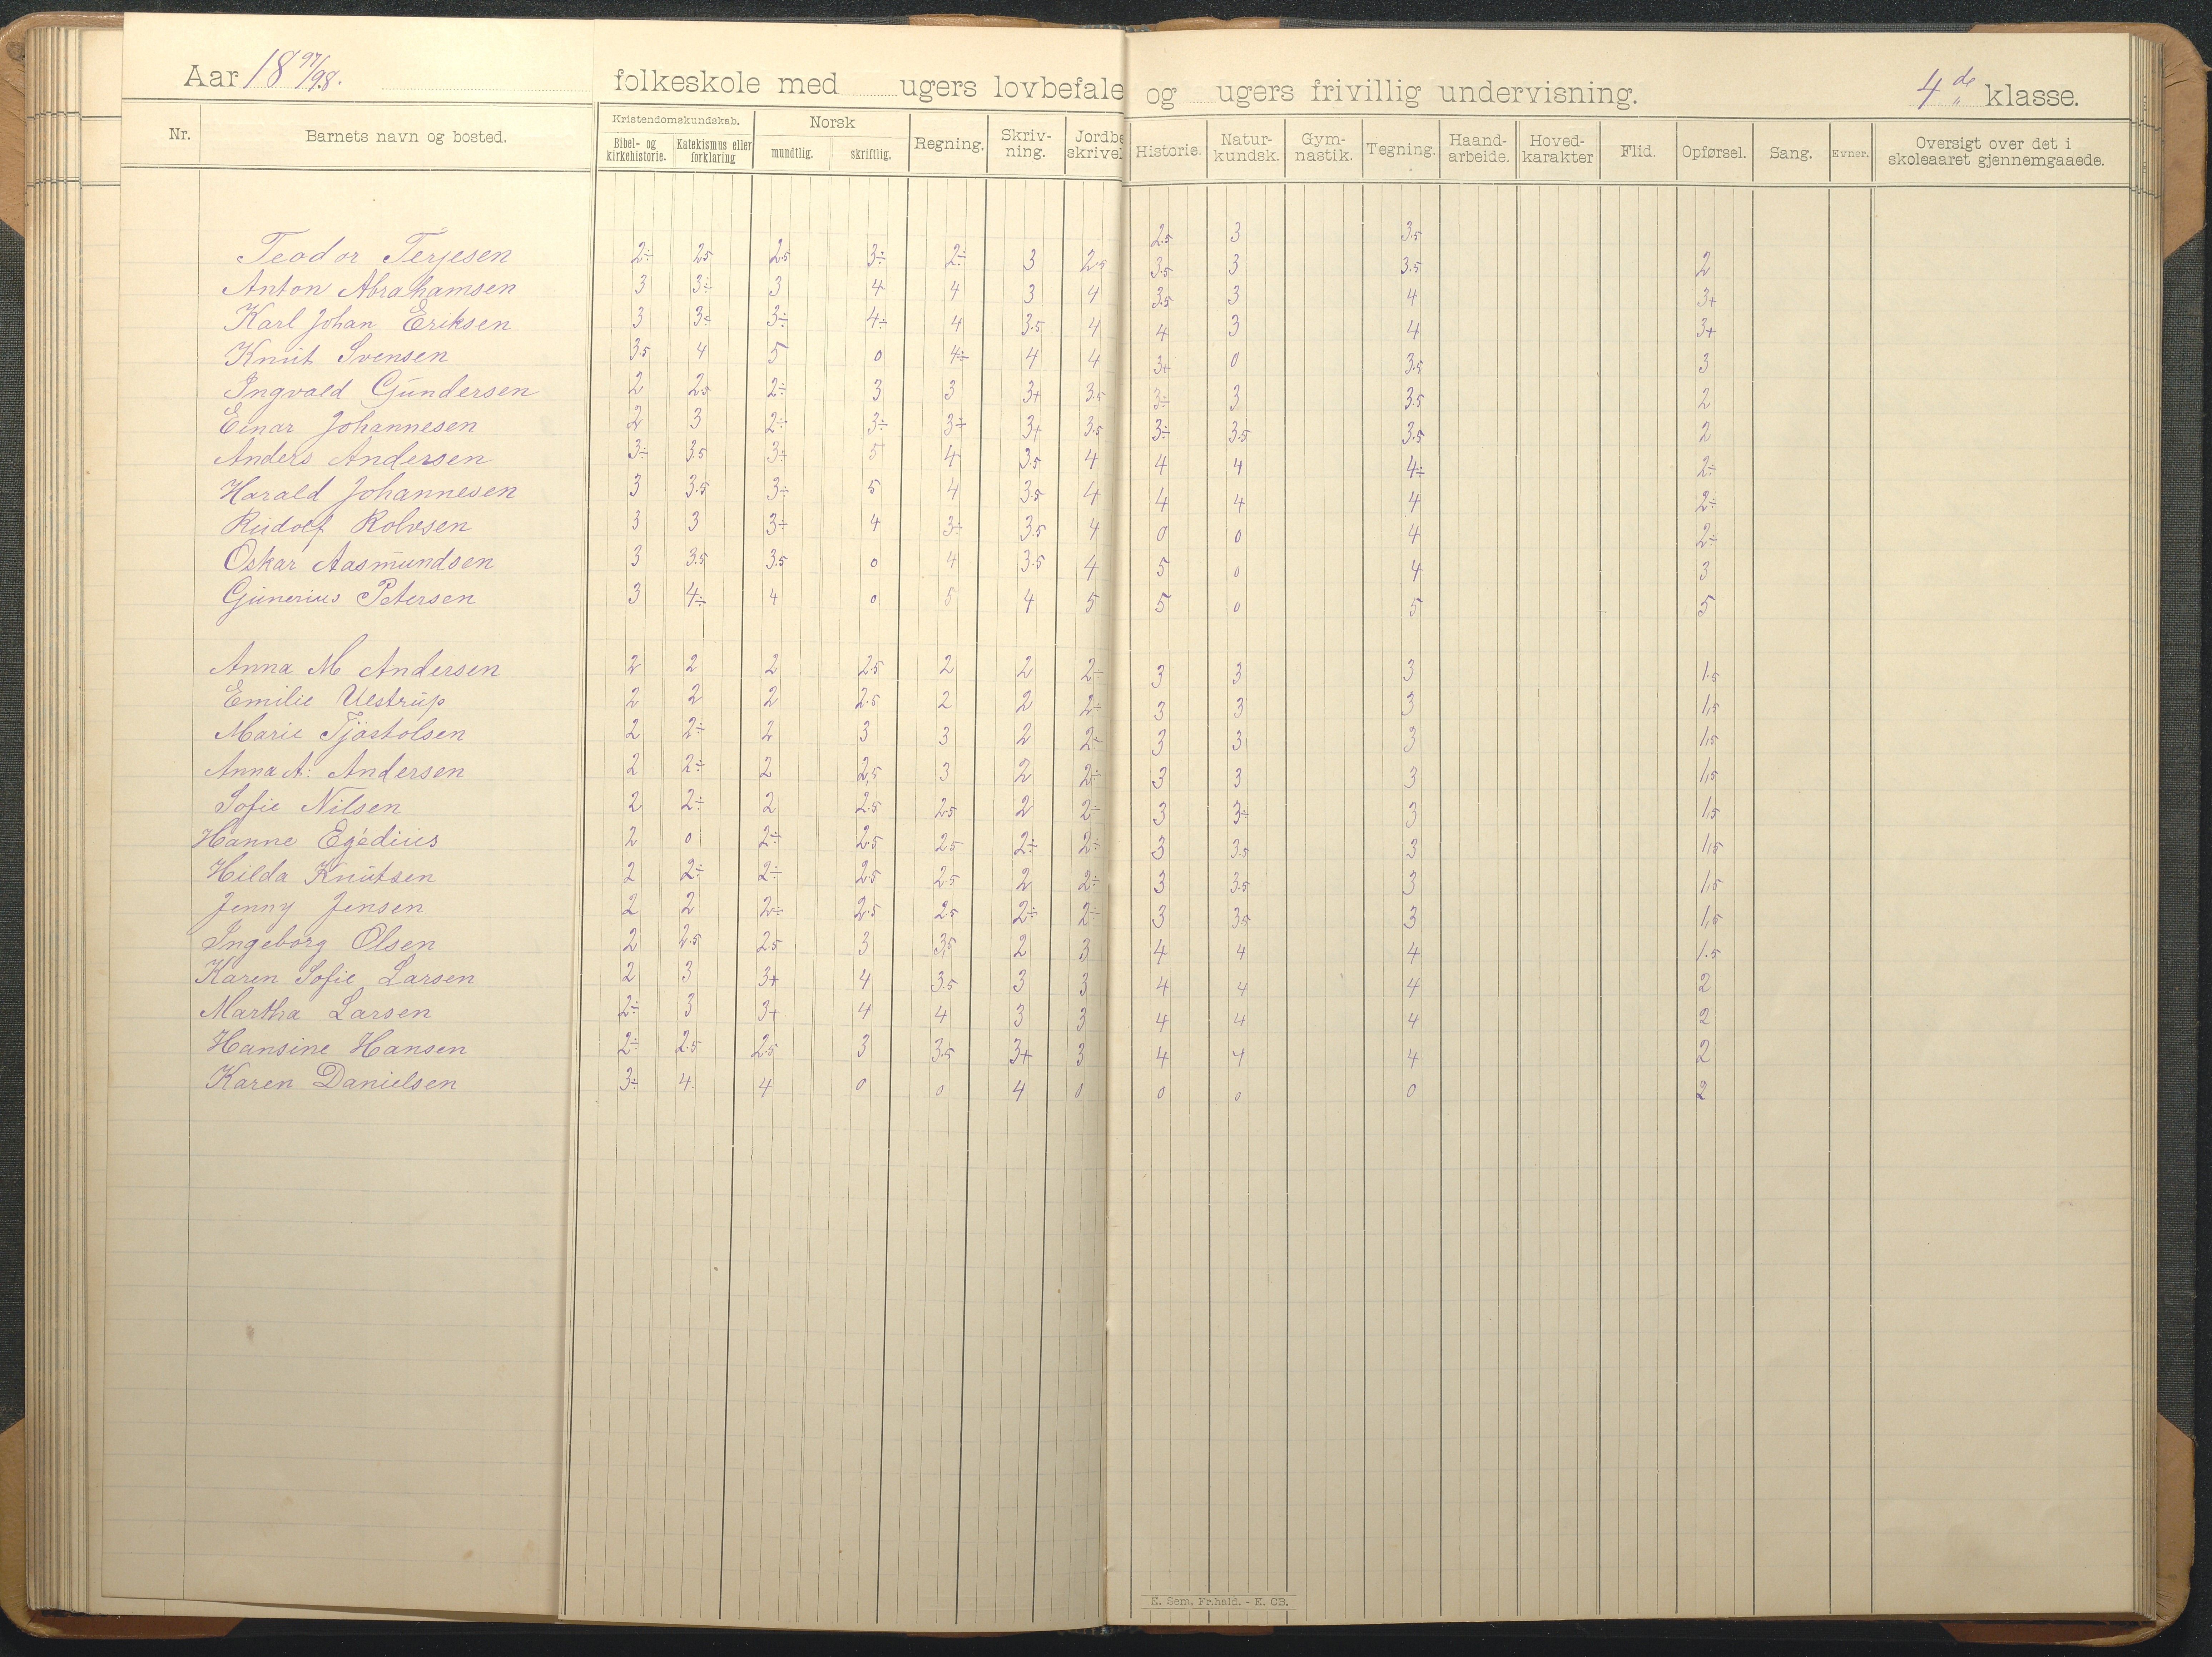 Aar 18 97/98.
folkeskole med ugers lovbefale
Nr. Barnets navn og bosted. Kristendomskundskab. Norsk Regning. Skriv-ning. Jordbe skrivel
Bibel- og kirkehistorie. Katekismus eller forklaring mundtlig. skriftlig.
Teodor Terjesen 2÷ 2.5 2.5 3÷ 2÷ 3 2.5
Anton Abrahamsen 3 3÷ 3 4 4 3 4
Karl Johan Eriksen 3 3÷ 3÷ 4÷ 4 3.5 4
Knut Svensen 3.5 4 5 0 4÷ 4 4
Ingvald Gundersen 2 2.5 2÷ 3 3 3+ 3.5
Einar Johannesen 2 3 2÷ 3÷ 3÷ 3+ 3.5
Anders Andersen 3÷ 3.5 3÷ 5 4 3.5 4
Harald Johannesen 3 3.5 3÷ 5 4 3.5 4
Rudolf Rolvsen 3 3 3÷ 4 3÷ 3.5 4
Oskar Aasmundsen 3 3.5 3.5 0 4 3.5 4
Gunerius Petersen 3 4÷ 4 0 5 4 5
Anna M Andersen 2 2 2 2.5 2 2 2÷
Emilie Ulstrup 2 2 2 2.5 2 2 2÷
Marie Tjøstolsen 2 2÷ 2 3 3 2 2÷
Anna A: Andersen 2 2÷ 2 2,5 3 2 2÷
Sofie Nilsen 2 2÷ 2 2.5 2.5 2 2÷
Hanne Egédius 2 0 2÷ 2.5 2.5 2÷ 2÷
Hilda Knutsen 2 2÷ 2÷ 2.5 2.5 2 2÷
Jenny Jensen 2 2 2÷ 2.5 2.5 2÷ 2÷
Ingeborg Olsen 2 2.5 2.5 3 3,5 2 3
Karen Sofie Larsen 2 3 3+ 4 3.5 3 3
Martha Larsen 2÷ 3 3+ 4 4 3 3
Hansine Hansen 2÷ 2.5 2.5 3 3.5 3+ 3
Karen Danielsen 3÷ 4. 4 0 0 4 0
og ugers frivillig undervisning. 4de klasse.
Historie. Natur-kundsk. Gym-nastik. Tegning. Haand-arbeide. Hoved-karakter Flid. Opførsel. Sang. Evner. Oversigt over det i skoleaaret gjennemgaaede.
2.5 3 3.5
3.5 3 3.5 2
3.5 3 4 3+
4 3 4 3+
3+ 0 3.5 3
3÷ 3 3.5 2
3÷ 3.5 3.5 2
4 4 4÷ 2÷
4 4 4 2÷
0 0 4 2÷
5 0 4 3
5 0 5 5
3 3 3 1.5
3 3 3 1,5
3 3 3 1,5
3 3 3 1,5
3 3÷ 3 1,5
3 3.5 3 1,5
3 3.5 3 1,5
3 3.5 3 1,5
4 4 4 1.5
4 4 4 2
4 4 4 2
4 4 4 2
0 0 0 2
E. Sem, Fr.hald. - E. CB.